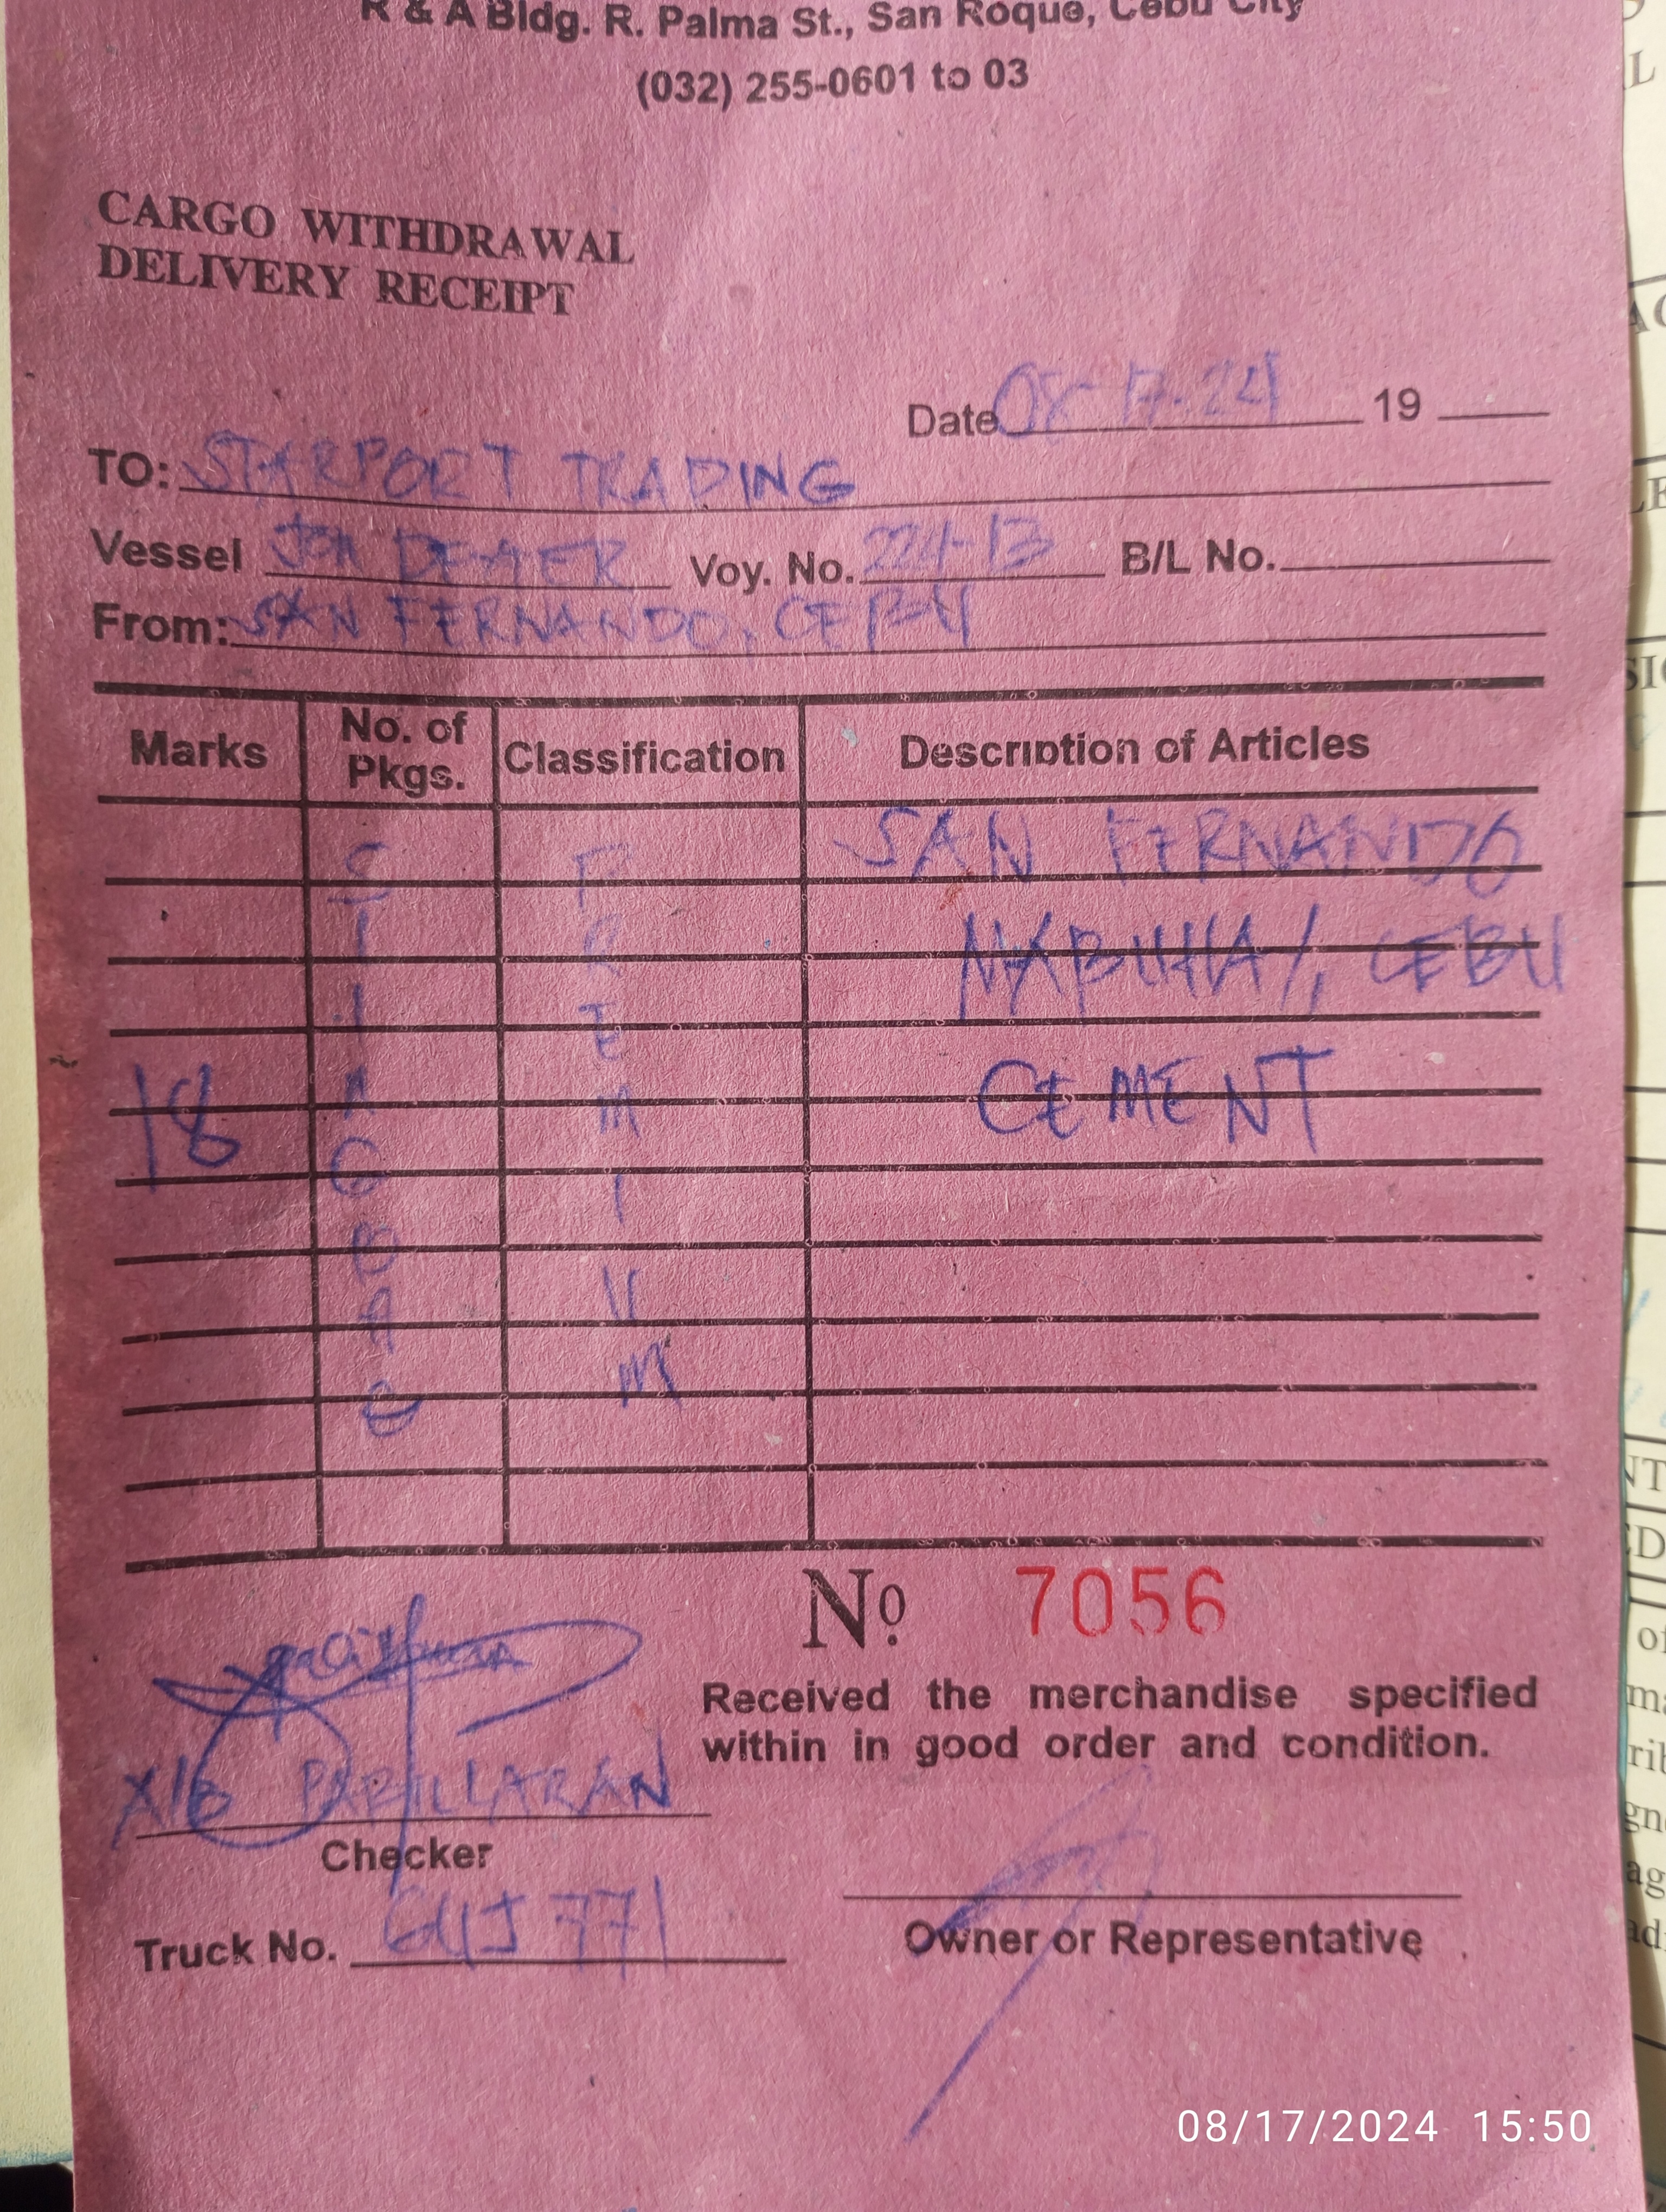 R & A Bldg. R. Palma St., San Roque, Cebu City
(032) 255-0601 to 03
CARGO WITHDRAWAL
DELIVERY RECEIPT
Date 08-17-24 19
TO: STARPORT TRADING
Vessel JON DEXTER Voy. No. 224-13 B/L No.
From: SAN FERNANDO, CEBU
Marks No. of Pkgs. Classification Description of Articles
SAN FERNANDO
MABUHAY, CEBU
CEMENT
18
No. 7056
Received the merchandise specified
within in good order and condition.
PABILLARAN
Checker
Truck No. GUJ 771
Owner or Representative
08/17/2024 15:50